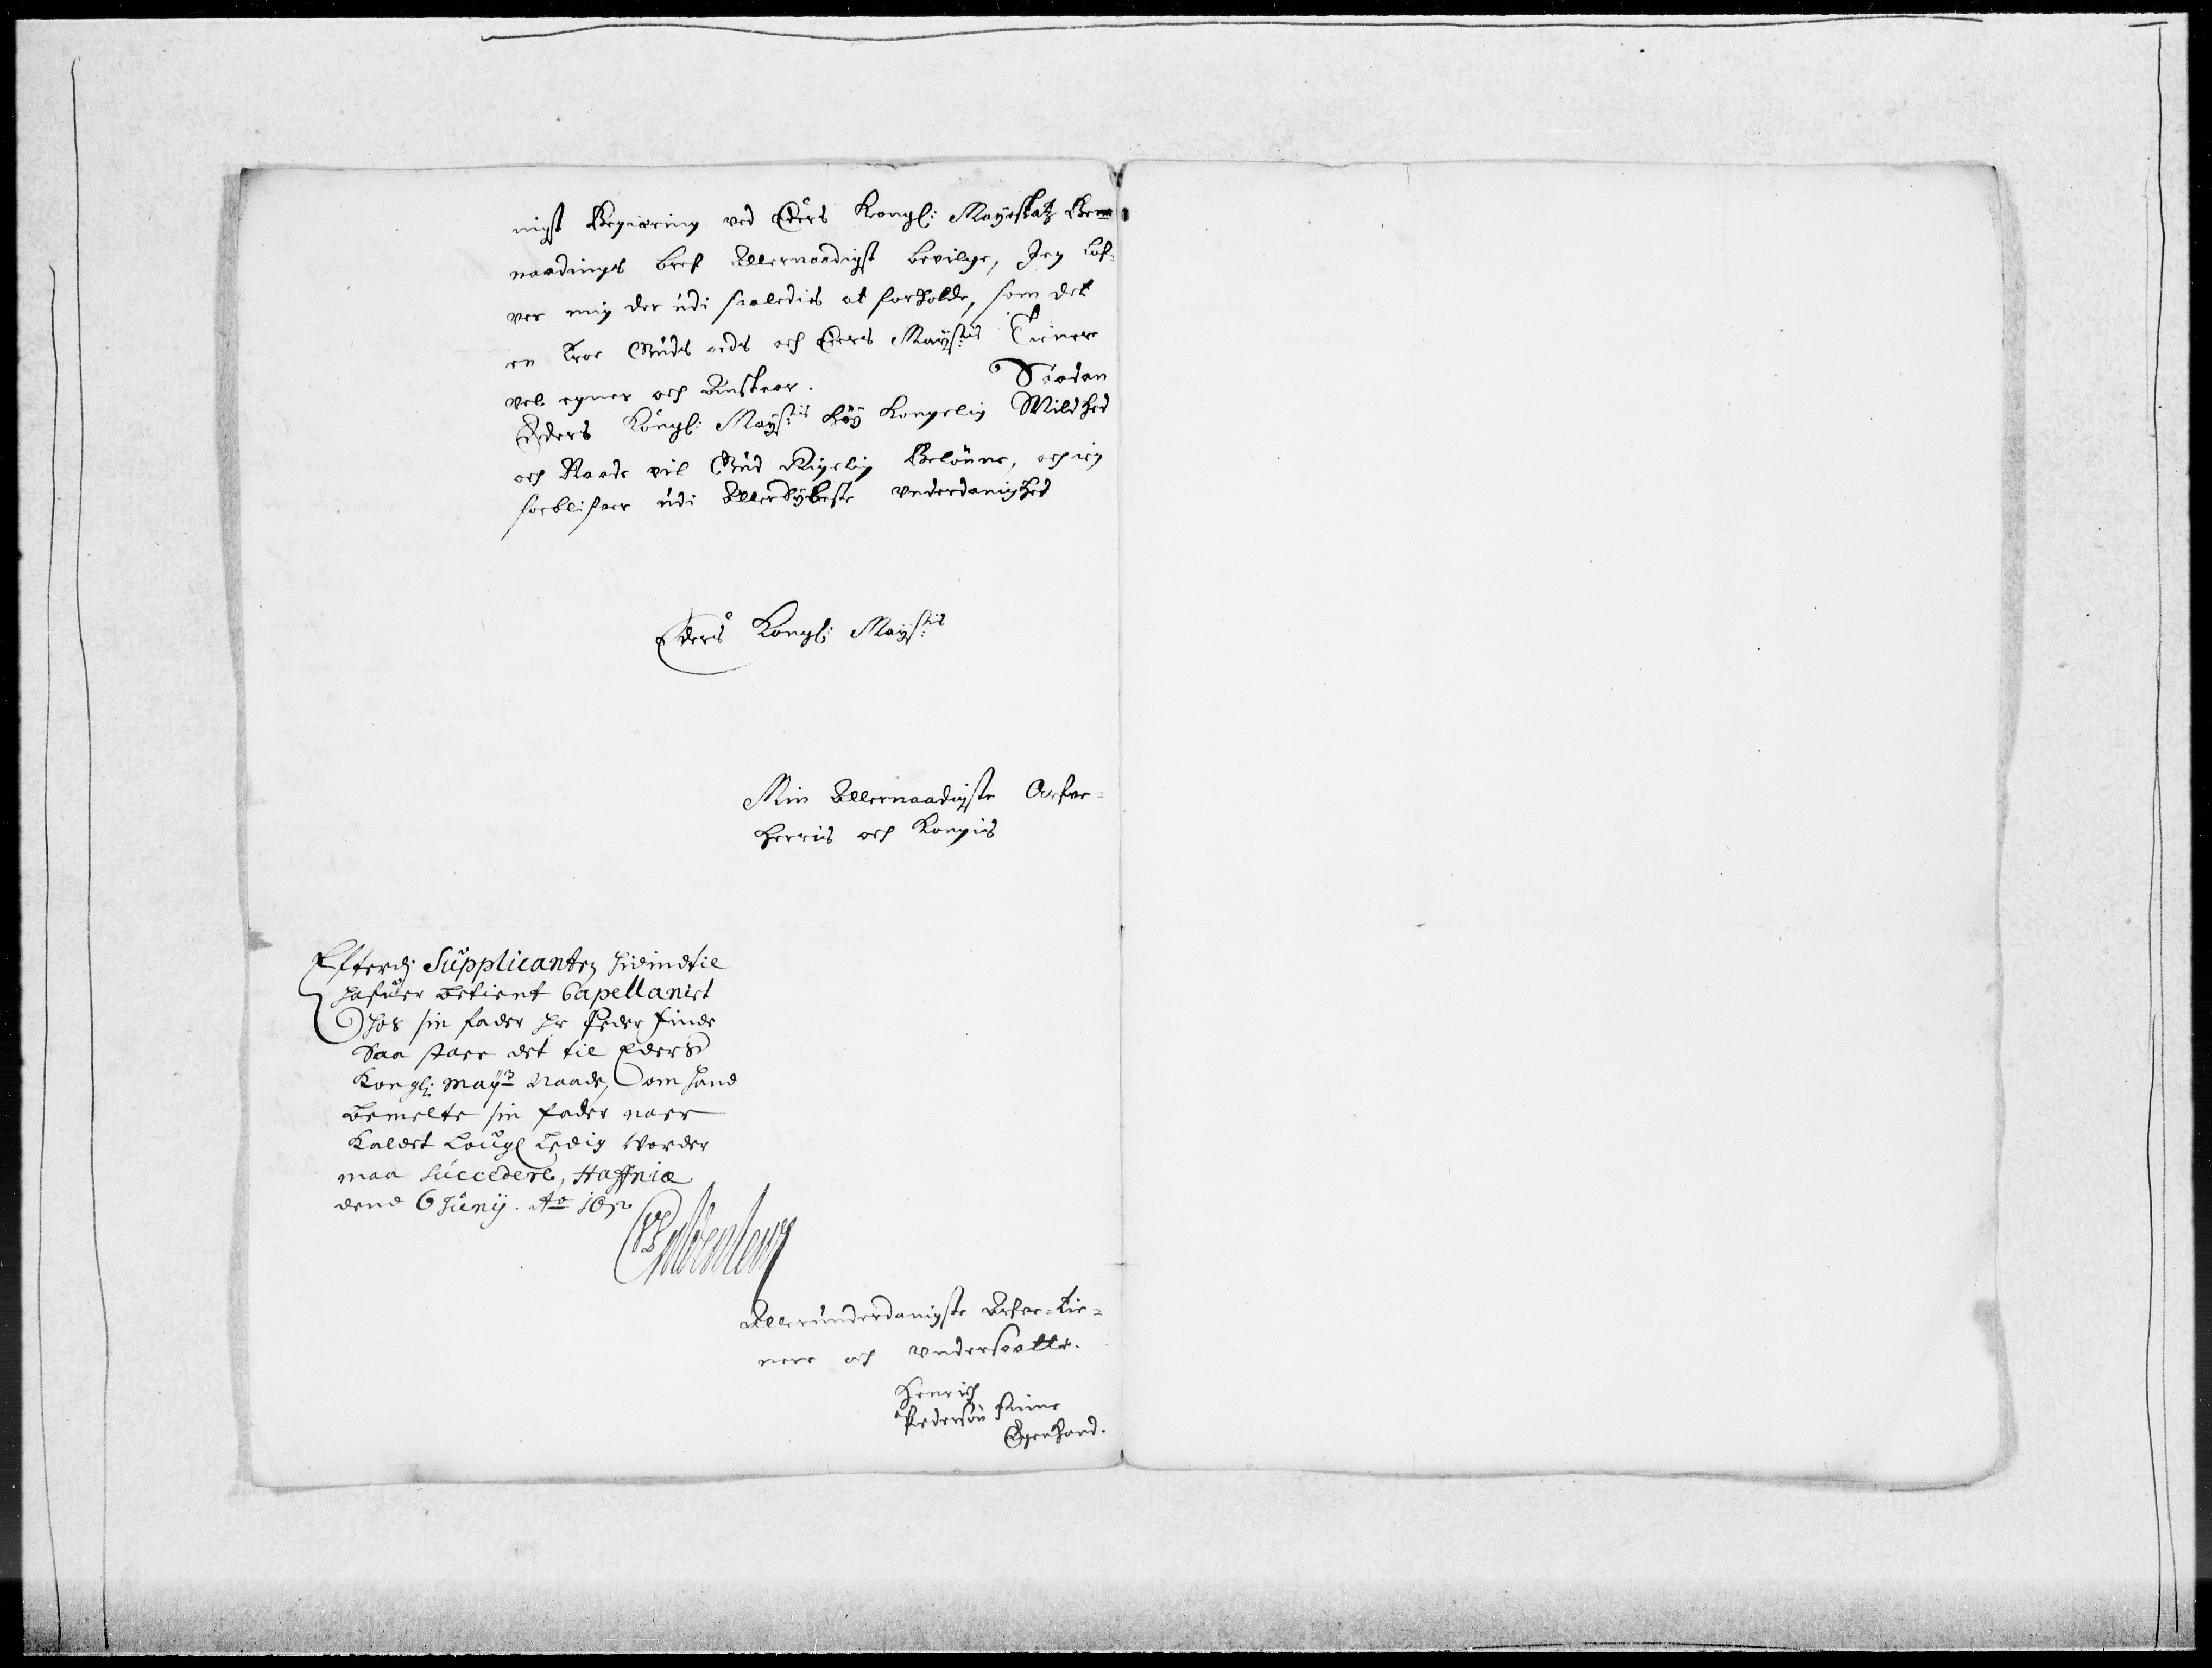 nigst Begiæring ved Eders Kongl: Mayestatz Be-
naadings bref Allernaadigst bevilge, Jeg lof-
ver mig der udi saaledis at forholde, som det
en Troe Guds ords och Eders Maystis Tienere
vel egner och Anstaar. Saadan
Eders Kongl: Maystis höy Kongelig Mildhed
och Naade vil Gud Rigelig Belönne, och ieg
forblifver udi Allerdybeste underdanighed
Eders Kongl: Maystis
Min Allernaadigste Arfve=
Herris och Kongis
Efterdj Supplicanten hidindtil
hafuer betient Capellaniet
hos sin fader Hr Peder Finde
Saa staar det til Eders
Kongl: Mayts Naade, om hand
bemelte sin fader naar
Kaldet Lougl Ledig worder
maa succedere, Haffniæ
dend 6 Junij. Ao
Gyldenleuw
Allerunderdanigste Arfve=tie=
nere och undersaatte.
Henrich
Pedersön Finne
Egenhand.